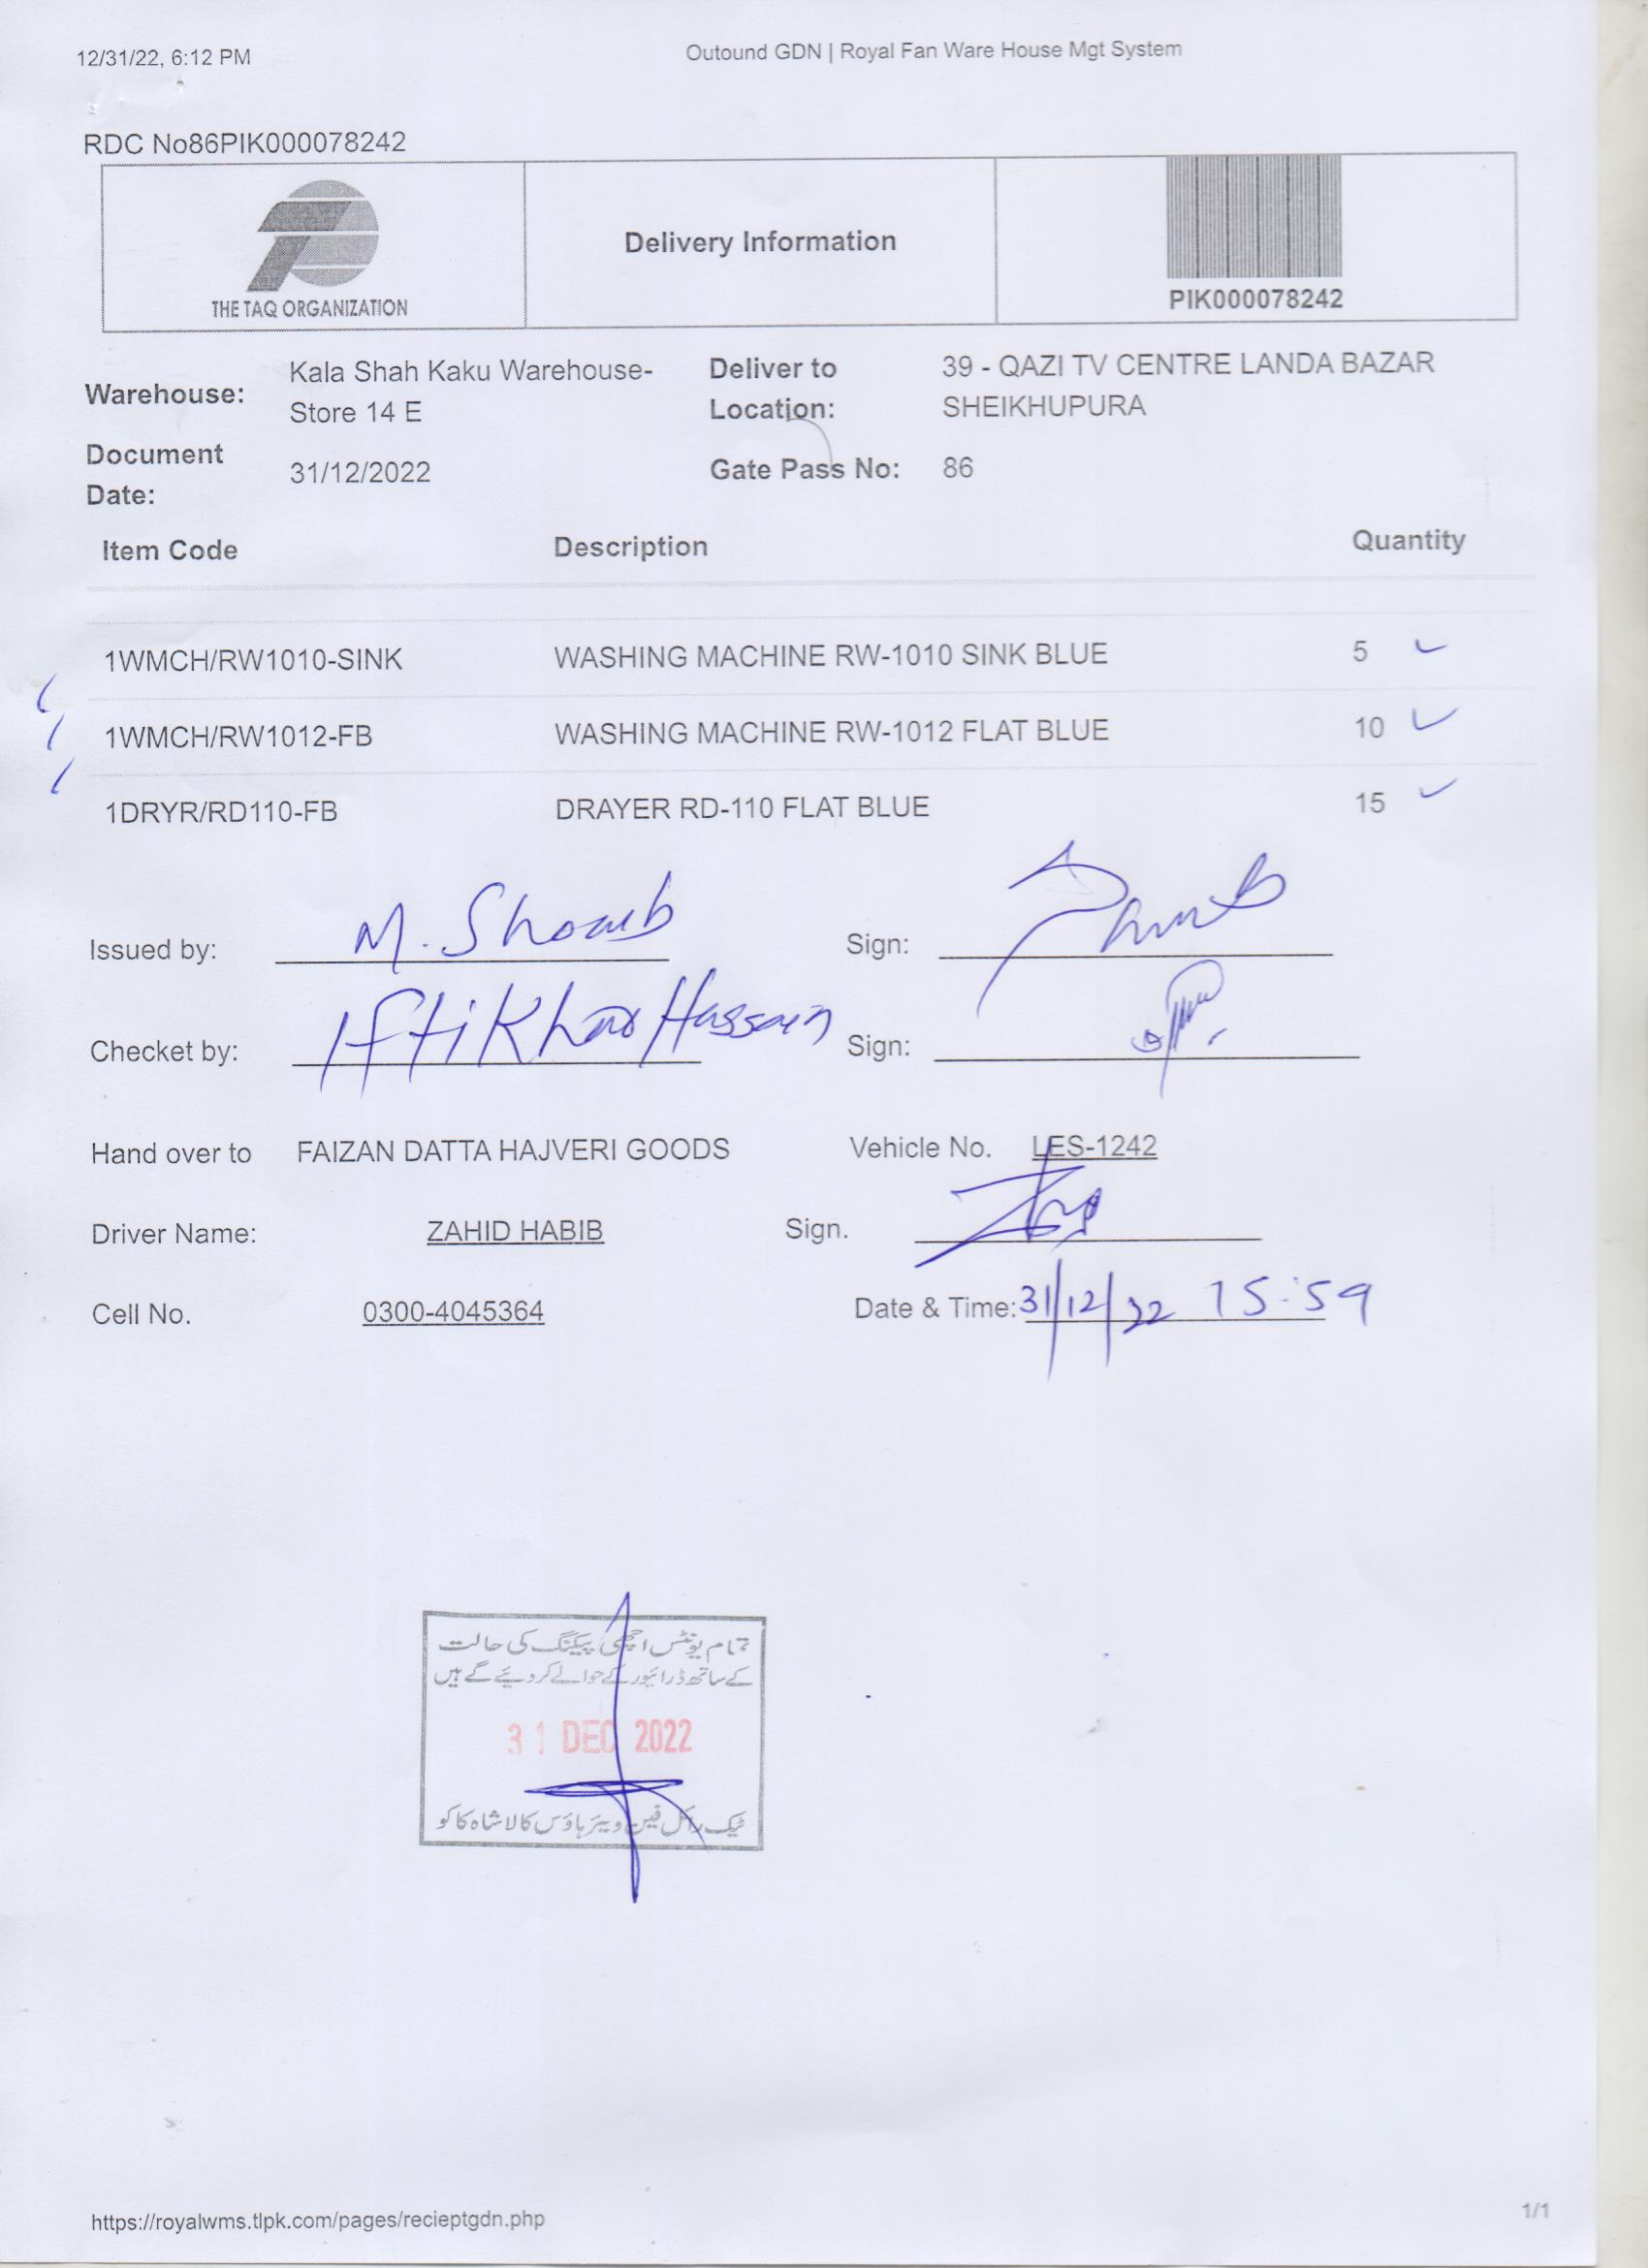 12/31/22, 6:12 PM Outound GDN | Royal Fan Ware House Mgt System
RDC No86PIK000078242
THE TAQ ORGANIZATION
Delivery Information
PIK000078242
Warehouse: Kala Shah Kaku Warehouse-
Store 14 E
Deliver to
Location:
39 - QAZI TV CENTRE LANDA BAZAR
SHEIKHUPURA
Document
Date:
31/12/2022
Gate Pass No: 86
Item Code Description Quantity
1WMCH/RW1010-SINK WASHING MACHINE RW-1010 SINK BLUE 5
1WMCH/RW1012-FB WASHING MACHINE RW-1012 FLAT BLUE 10
1DRYR/RD110-FB DRAYER RD-110 FLAT BLUE 15
Issued by: M. Shoaib Sign:
Checket by: Iftikhar Hussain Sign:
Hand over to FAIZAN DATTA HAJVERI GOODS Vehicle No. LES-1242
Driver Name: ZAHID HABIB Sign.
Cell No. 0300-4045364 Date & Time: 31/12/22 15:59
تمام یونٹس اچھی پیکنگ کی حالت
کے ساتھ ڈرائیور کے حوالے کر دیئے گے ہیں
31 DEC 2022
ٹیک رائل فین ویئر ہاؤس کالا شاہ کاکو
https://royalwms.tlpk.com/pages/recieptgdn.php 1/1